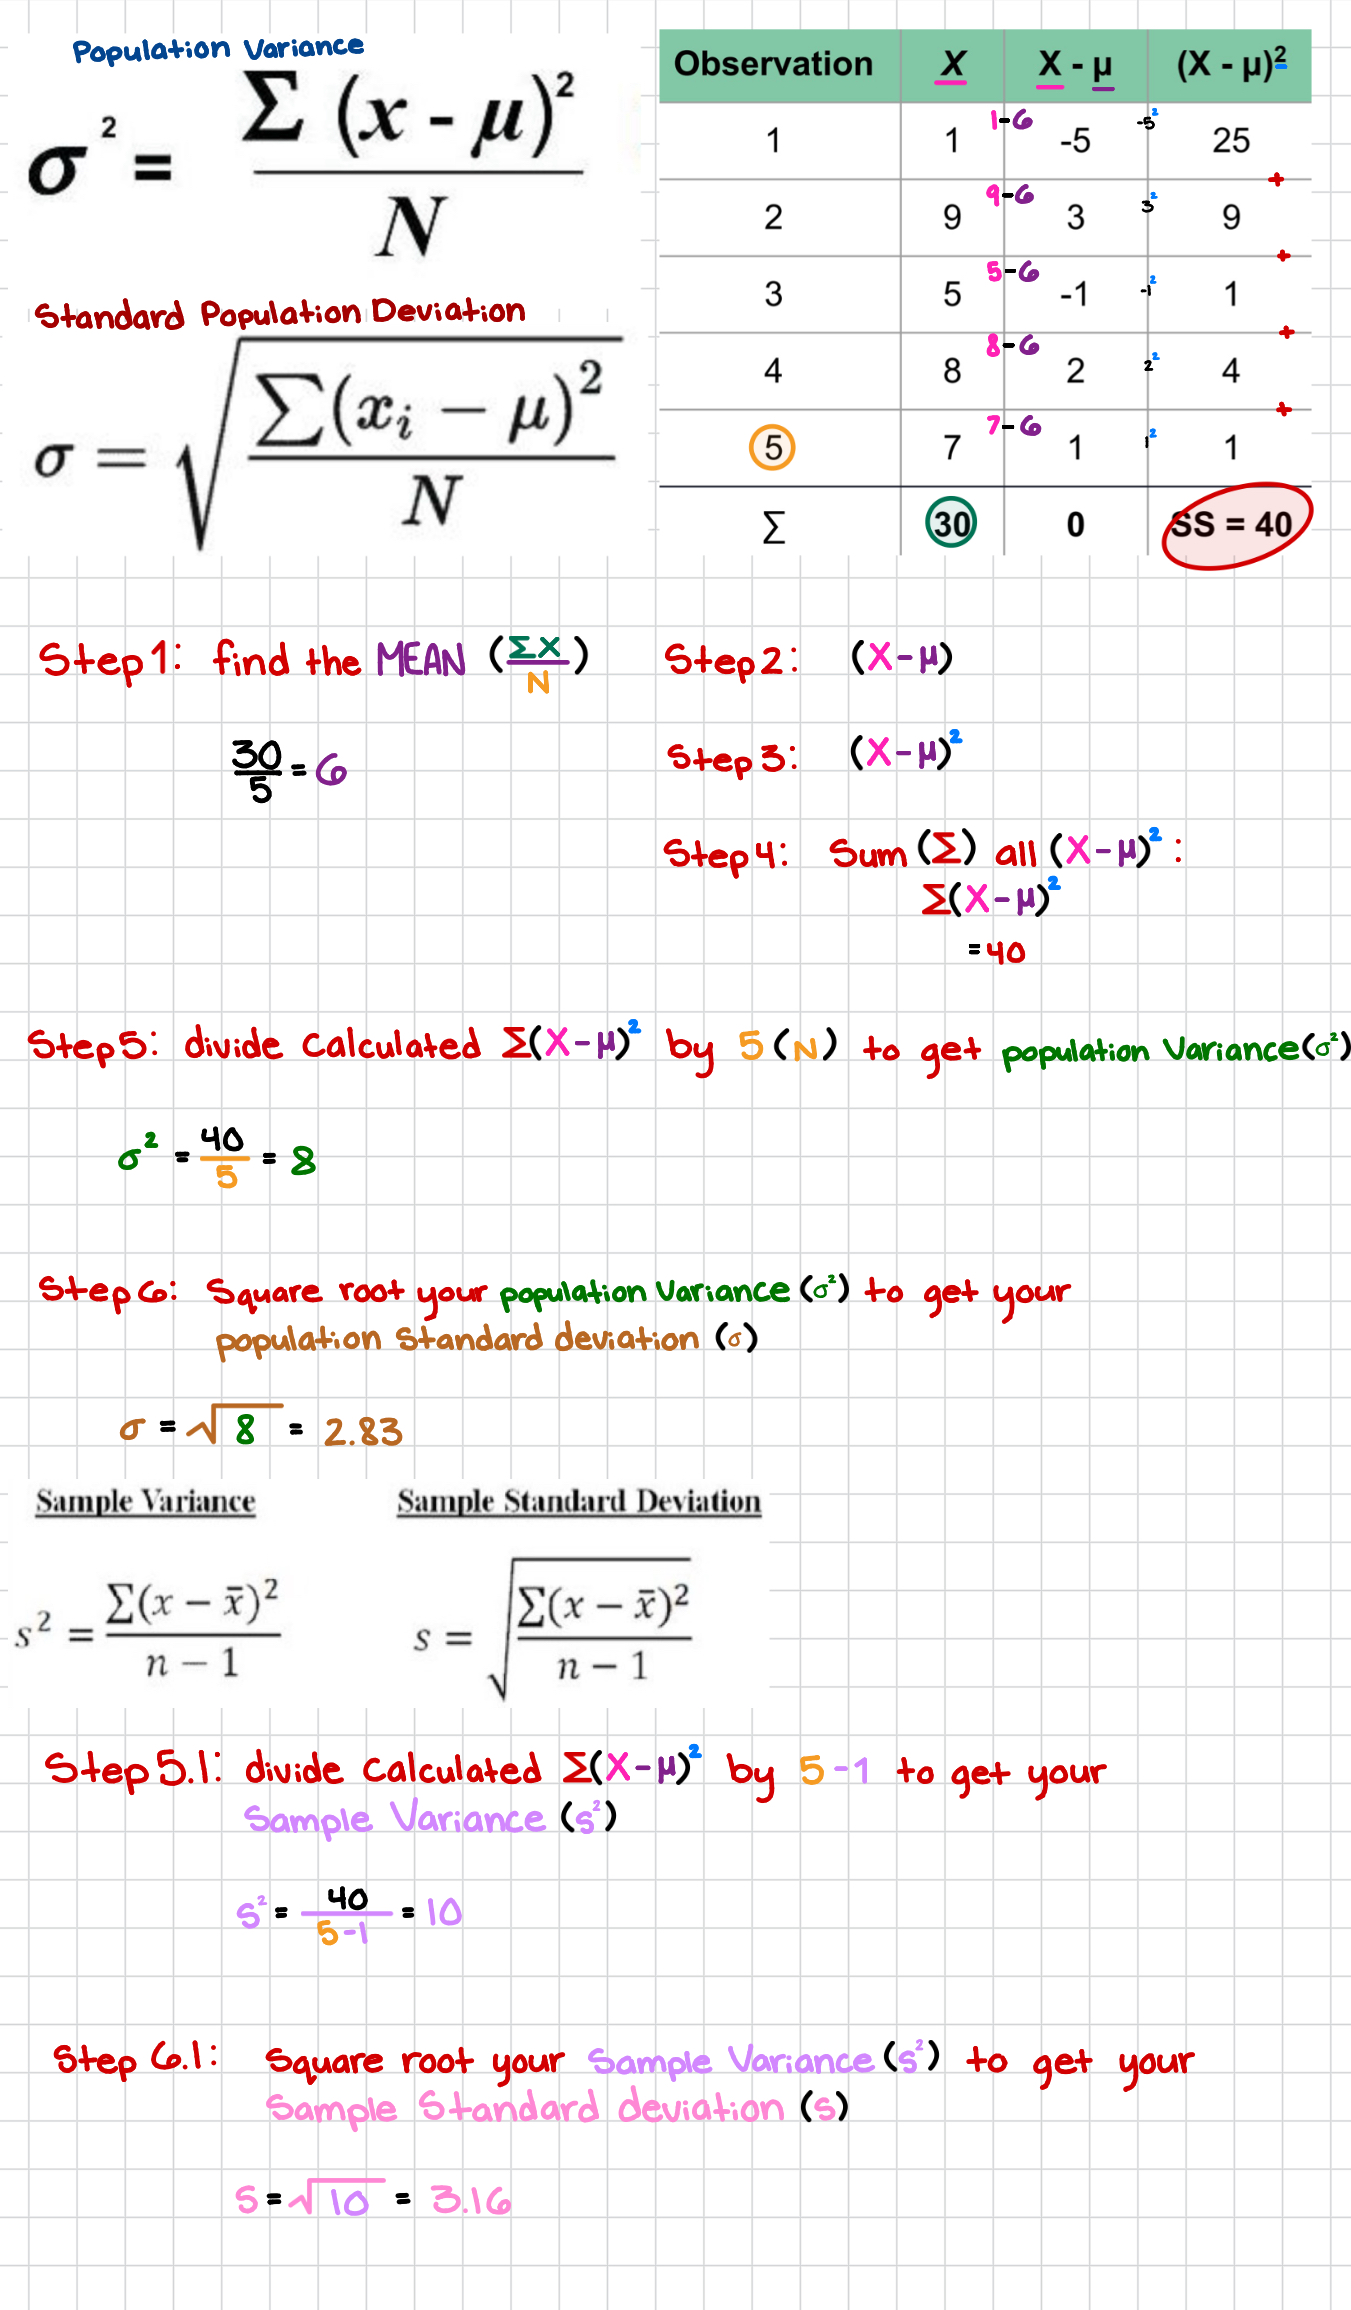 Population Variance
σ² = Σ (x - μ)² / N
Standard Population Deviation
σ = √(∑(xᵢ − μ)² / N)
Observation X X - μ (X - μ)²
1 1 1-6 -5 -5² 25 +
2 9 9-6 3 3² 9 +
3 5 5-6 -1 -1² 1 +
4 8 8-6 2 2² 4 +
5 7 7-6 1 1² 1
∑ 30 0 SS = 40
Step 1: find the MEAN (ΣX / N)
30 / 5 = 6
Step 2: (X-μ)
Step 3: (X-μ)²
Step 4: Sum (Σ) all (X-μ)² :
Σ(X-μ)²
= 40
Step 5: divide Calculated Σ(X-μ)² by 5 (N) to get population Variance (σ²)
σ² = 40 / 5 = 8
Step 6: Square root your population Variance (σ²) to get your
population Standard deviation (σ)
σ = √8 = 2.83
Sample Variance Sample Standard Deviation
s² = ∑(x − x̄)² / n − 1 s = √(∑(x − x̄)² / n − 1)
Step 5.1: divide Calculated Σ(X-μ)² by 5-1 to get your
Sample Variance (s²)
s² = 40 / 5-1 = 10
Step 6.1: Square root your Sample Variance (s²) to get your
Sample Standard deviation (s)
s = √10 = 3.16